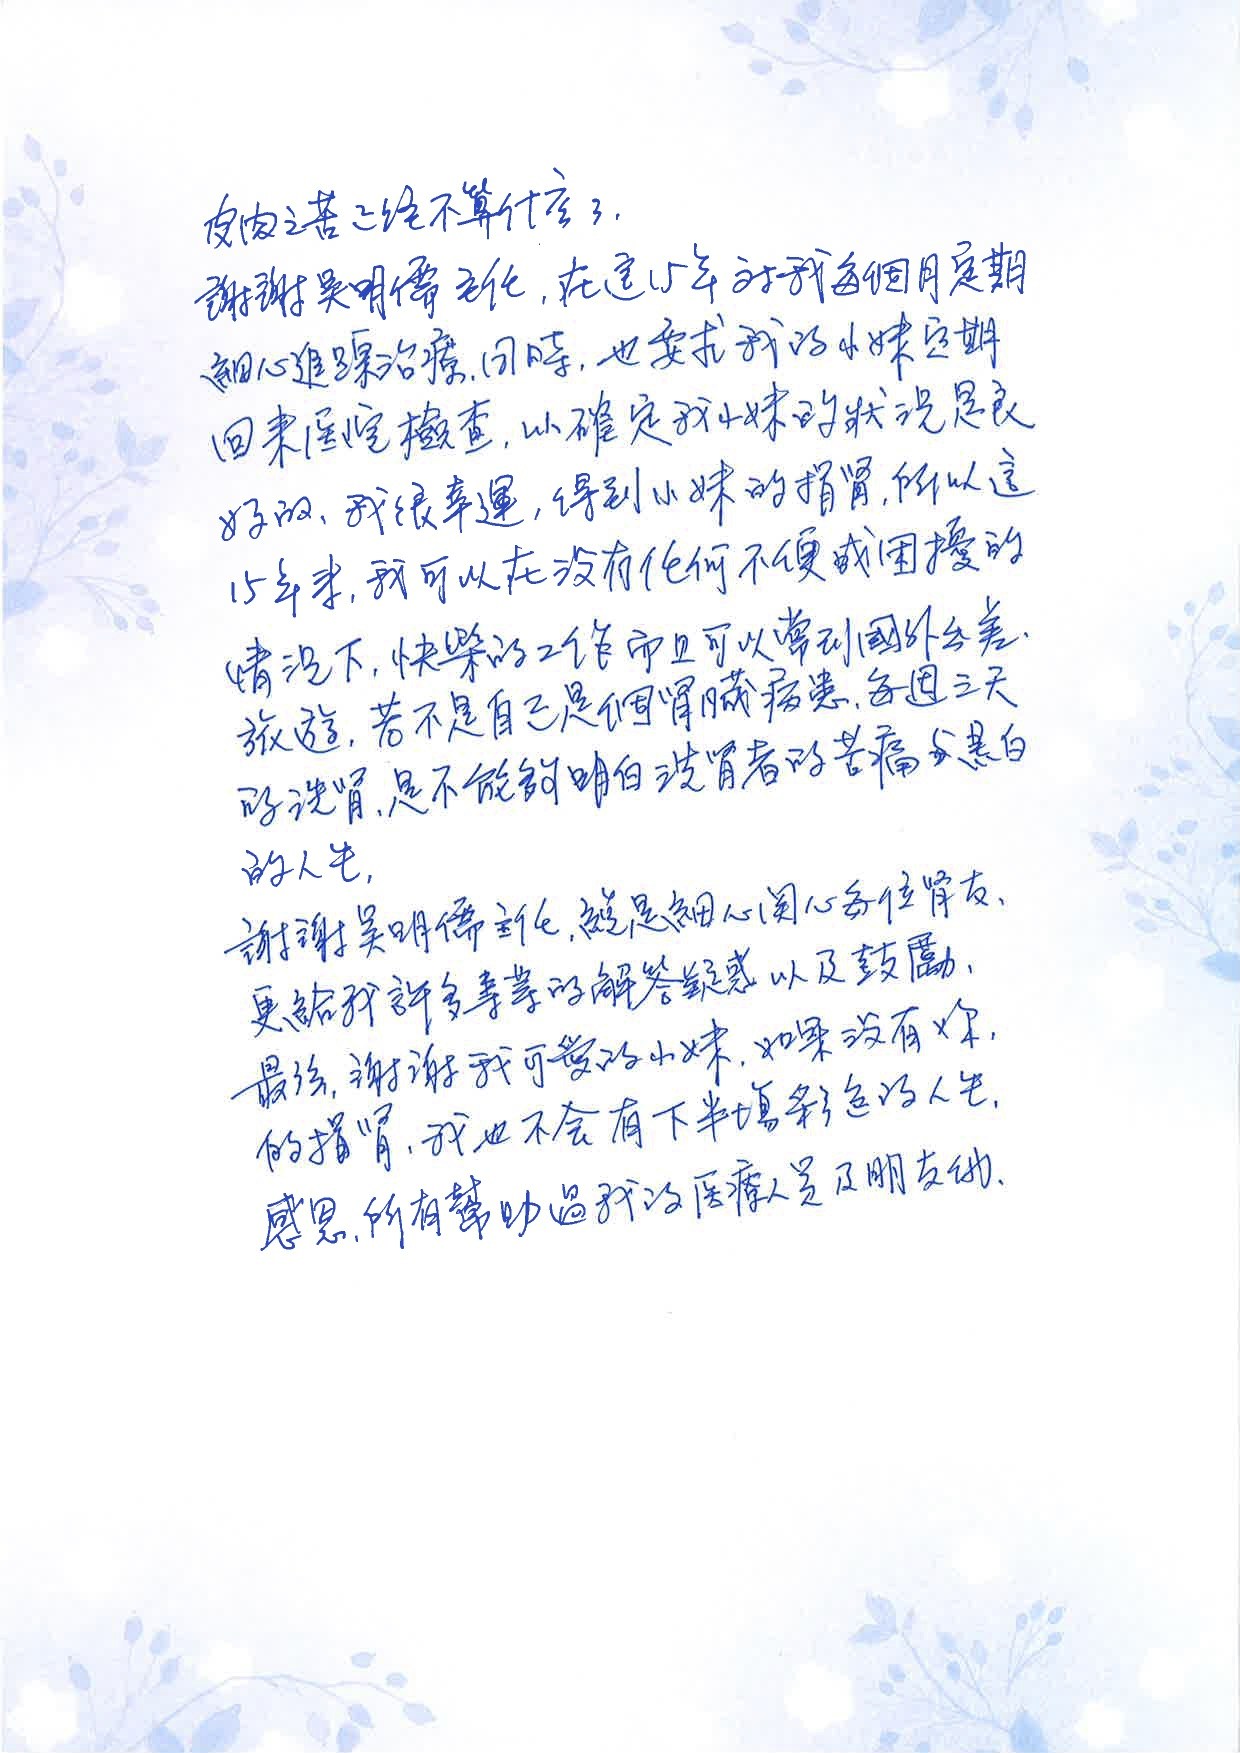 皮肉之苦已经不算什麼了.
謝謝吳明儒主任,在這15年对我每個月定期
細心追踪治療,同時,也要求我的小妹定期
回來医院檢查,以確定我小妹的狀況是良
好的、我很幸運,得到小妹的捐腎,所以這
15年来,我可以在没有任何不便或困擾的
情況下,快樂的工作而且可以常到國外出差.
旅遊,若不是自己是個腎臟病患,每週三天
的洗腎,是不能夠明白洗腎者的苦痛与黑白
的人生,
謝謝吳明儒主任,總是細心関心每位腎友、
更給我許多專業的解答疑惑以及鼓勵、
最後,謝謝我可愛的小妹,如果没有妳,
的捐腎,我也不会有下半場彩色的人生,
感恩,所有幫助過我的医療人員及朋友們、